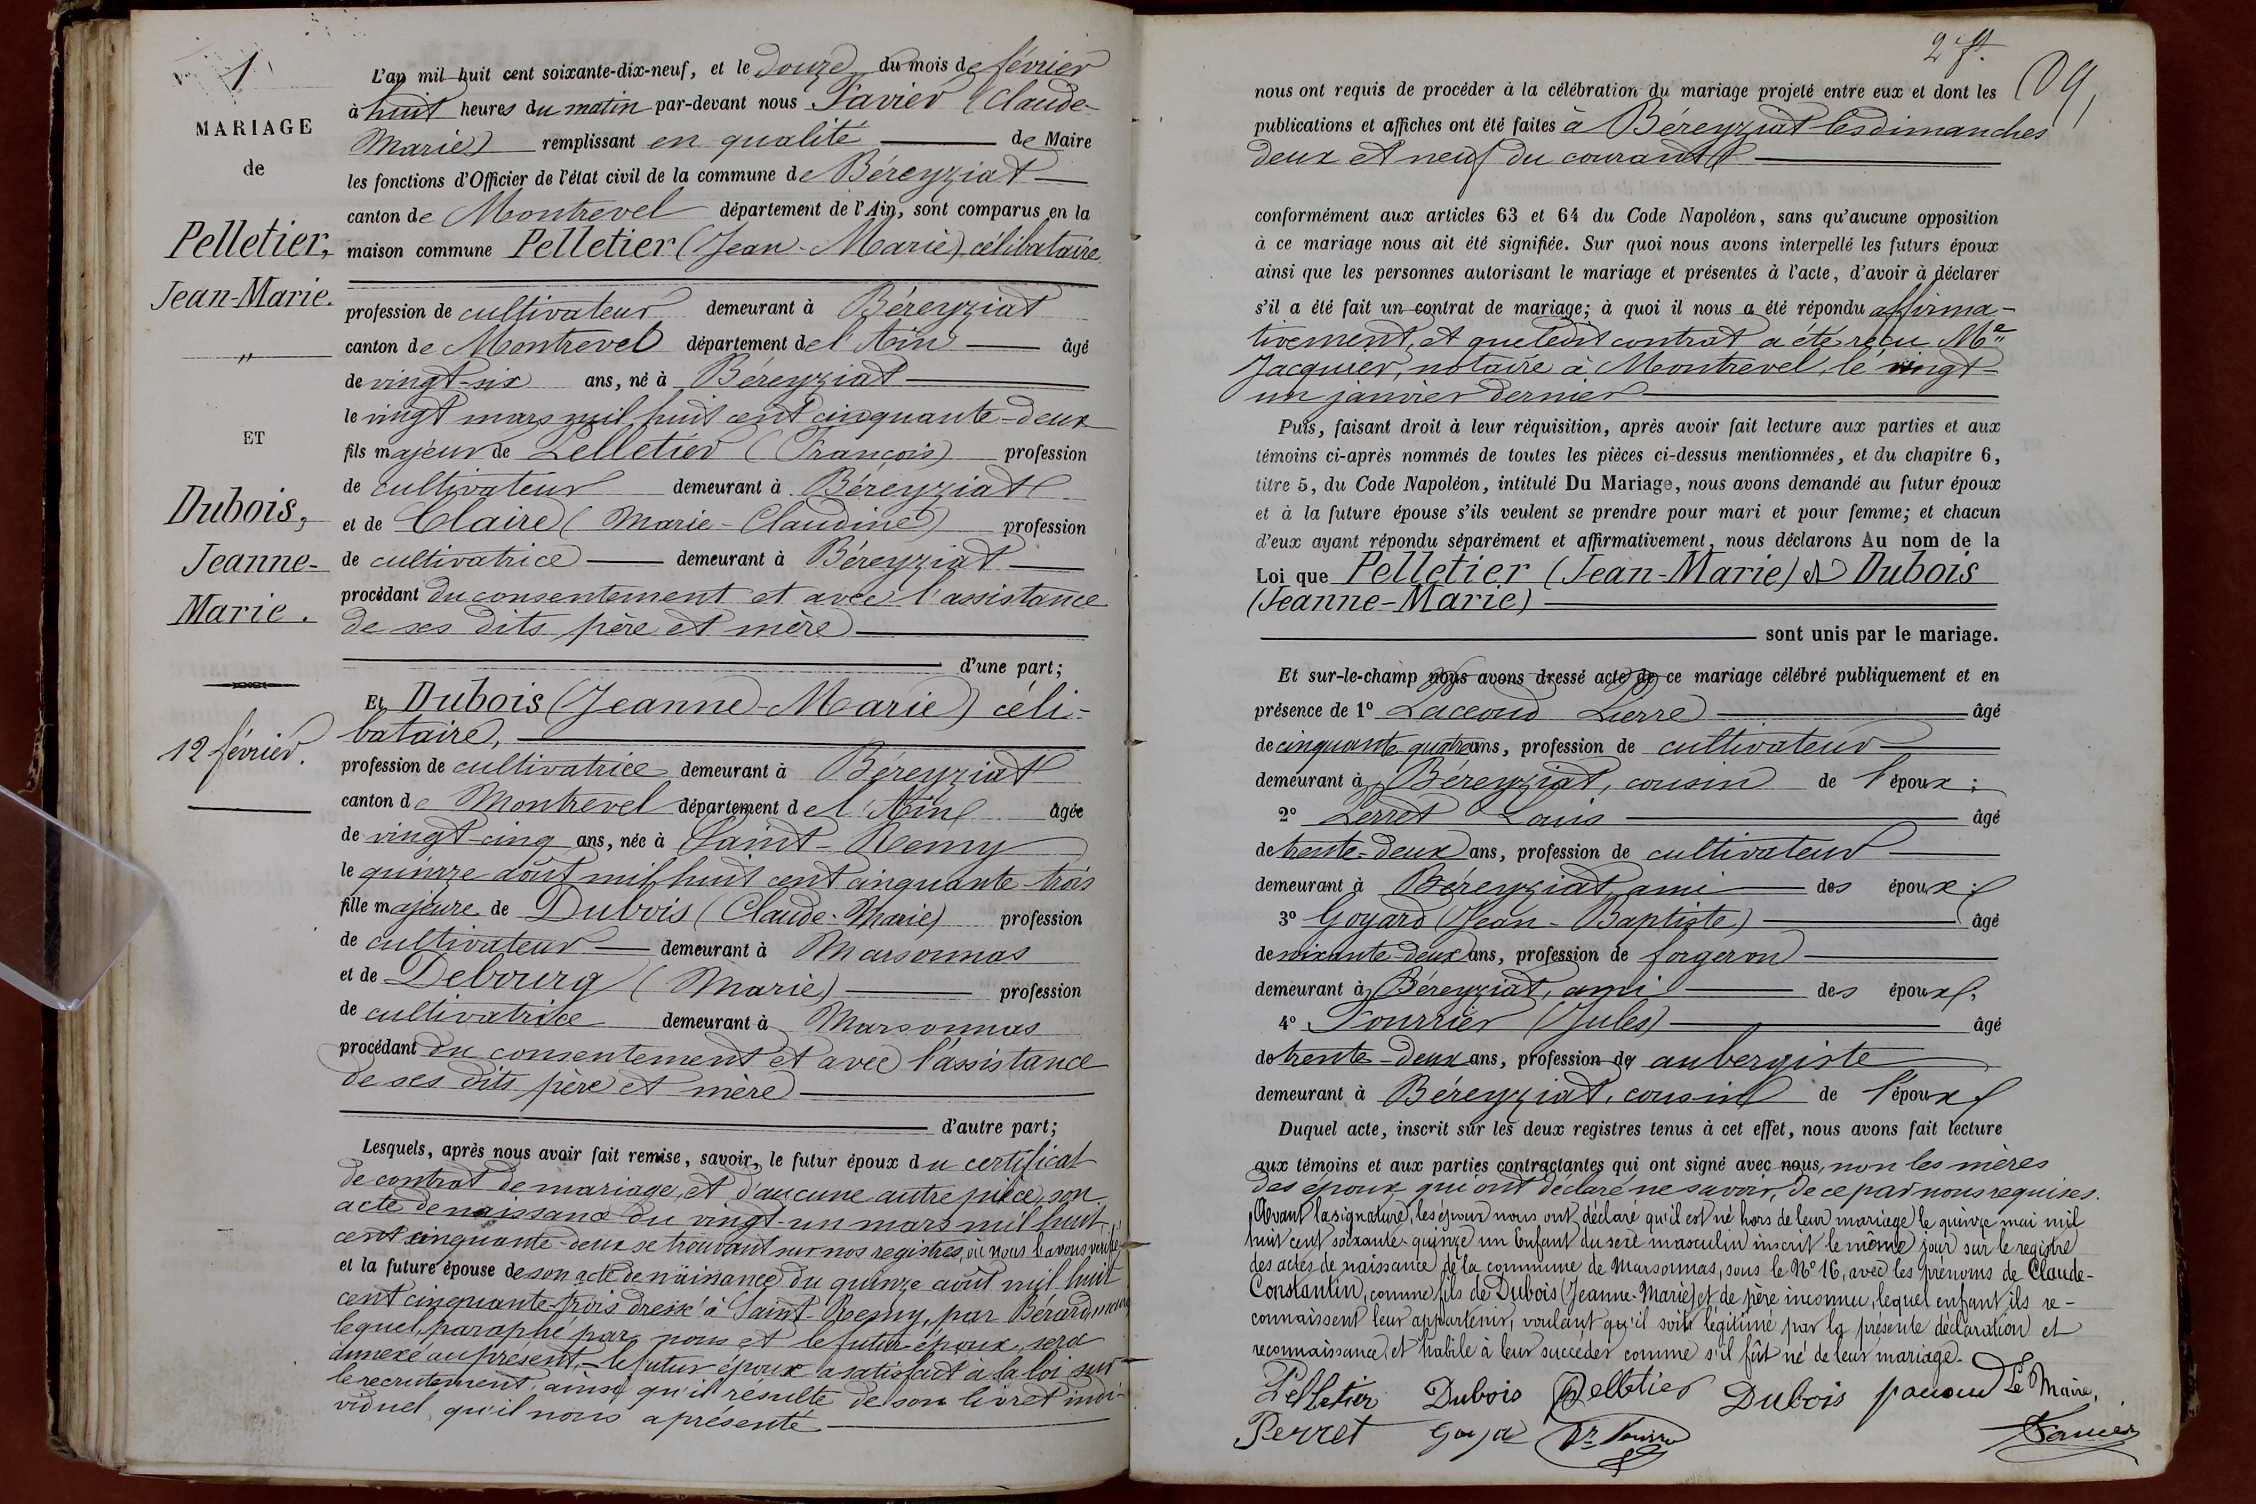 1
MARIAGE
de
Pelletier,
Jean-Marie.
"
ET
Dubois,
Jeanne-
Marie.
12 février.
L'an mil huit cent soixante-dix-neuf, et le douze du mois de février
à huit heures du matin par-devant nous Favier (Claude-
Marie) remplissant en qualité de Maire
les fonctions d'Officier de l'état civil de la commune de Béreyziat
canton de Montrevel département de l'Ain, sont comparus en la
maison commune Pelletier (Jean-Marie) célibataire
profession de cultivateur demeurant à Béreyziat
canton de Montrevel département de l'Ain âgé
de vingt-six ans, né à Béreyziat
le vingt mars mil huit cent cinquante-deux
fils majeur de Pelletier (François) profession
de cultivateur demeurant à Béreyziat
et de Claire (Marie-Claudine) profession
de cultivatrice demeurant à Béreyziat
procédant du consentement et avec l'assistance
de ses dits père et mère
d'une part;
Et Dubois (Jeanne-Marie) céli-
bataire,
profession de cultivatrice demeurant à Béreyziat
canton de Montrevel département de l'Ain âgée
de vingt-cinq ans, née à Saint-Remy
le quinze août mil huit cent cinquante-trois
fille majeure de Dubois (Claude-Marie) profession
de cultivateur demeurant à Marsonnas
et de Debourg (Marie) profession
de cultivatrice demeurant à Marsonnas
procédant du consentement et avec l'assistance
de ses dits père et mère
d'autre part;
Lesquels, après nous avoir fait remise, savoir, le futur époux du certificat
de contrat de mariage, et d'aucune autre pièce, son
acte de naissance du vingt-un mars mil huit
cent cinquante-deux se trouvant sur nos registres, où nous l'avons vérifié,
et la future épouse de son acte de naissance du quinze août mil huit
cent cinquante-trois dressé à Saint-Remy, par Berard, maire
lequel, paraphé par nous et le futur époux, sera
annexé au présent, - le futur époux a satisfait à la loi sur
le recrutement, ainsi qu'il résulte de son livret indi-
viduel qu'il nous a présenté
2 f.t
109,
nous ont requis de procéder à la célébration du mariage projeté entre eux et dont les
publications et affiches ont été faites à Béreyziat les dimanches
deux et neuf du courant
conformément aux articles 63 et 64 du Code Napoléon, sans qu'aucune opposition
à ce mariage nous ait été signifiée. Sur quoi nous avons interpellé les futurs époux
ainsi que les personnes autorisant le mariage et présentes à l'acte, d'avoir à déclarer
s'il a été fait un contrat de mariage; à quoi il nous a été répondu affirma-
tivement, et que ledit contrat a été reçu Me
Jacquier, notaire à Montrevel, le vingt-
un janvier dernier
Puis, faisant droit à leur réquisition, après avoir fait lecture aux parties et aux
témoins ci-après nommés de toutes les pièces ci-dessus mentionnées, et du chapitre 6,
titre 5, du Code Napoléon, intitulé Du Mariage, nous avons demandé au futur époux
et à la future épouse s'ils veulent se prendre pour mari et pour femme; et chacun
d'eux ayant répondu séparément et affirmativement, nous déclarons Au nom de la
Loi que Pelletier (Jean-Marie) et Dubois
(Jeanne-Marie)
sont unis par le mariage.
Et sur-le-champ nous avons dressé acte de ce mariage célébré publiquement et en
présence de 1º Pierre âgé
de cinquante-quatre ans, profession de cultivateur
demeurant à Béreyziat, cousin de l'époux;
2º Perret Louis âgé
de trente-deux ans, profession de cultivateur
demeurant à Béreyziat, ami des époux;
3º Goyard (Jean-Baptiste) âgé
de soixante-deux ans, profession de forgeron
demeurant à Béreyziat, ami des époux,
4º Fourrier (Jules) âgé
de trente-deux ans, profession de aubergiste
demeurant à Béreyziat, cousin de l'époux
Duquel acte, inscrit sur les deux registres tenus à cet effet, nous avons fait lecture
aux témoins et aux parties contractantes qui ont signé avec nous, non les mères
des époux qui ont déclaré ne savoir, de ce par nous requises.
Avant la signature, les époux nous ont déclaré qu'il est né hors de leur mariage le quinze mai mil
huit cent soixante-quinze un enfant du sexe masculin inscrit le même jour sur le registre
des actes de naissance de la commune de Marsonnas, sous le Nº 16, avec les prénoms de Claude-
Constantin, comme fils de Dubois (Jeanne-Marie) et de père inconnu, lequel enfant ils re-
connaissent leur appartenir, voulant qu'il soit légitimé par la présente déclaration et
reconnaissance, et habile à leur succéder comme s'il fût né de leur mariage.
Pelletier Dubois Pelletier Dubois Le Maire,
Perret Favier